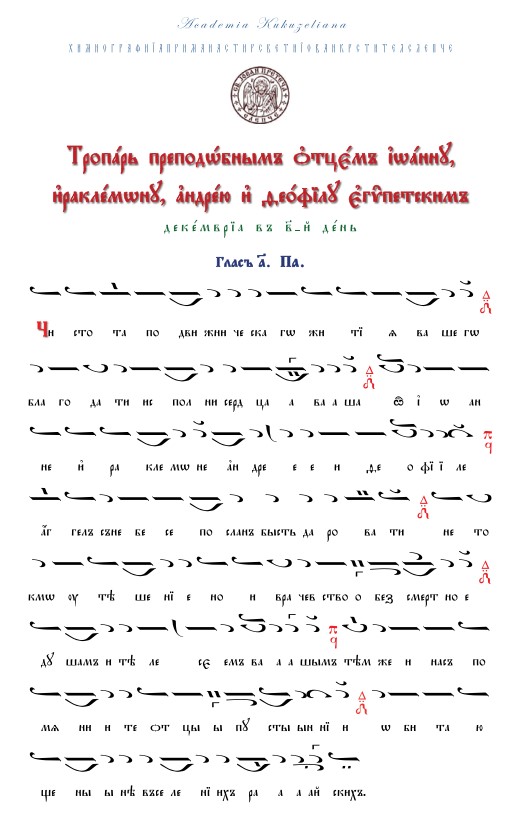 Academia Kukuzeliana
ХИМНОГРАФИЇАПРИМАНАСТИРСВЕТИЇОВАНКРСТИТЕЛСЛЕПЧЕ
Тропа́рь преподѡ́бнымъ ѻ҆тцє́мъ і҆ѡа́ннꙋ,
и҆ракле́мѡнꙋ, а҆ндре́ю и҆ ѳео́фїлꙋ є҆гѵ́петскимъ
деке́мврїа въ в҃-й де́нь
Гласъ а҃. Па.
Чи сто та по дви жни че ска гѡ жи тї ѧ ва ше гѡ
бла го да ти ис пол ни серд ца а ва а ша ѿ і ѡ ан
не и҆ ра кле мѡ не а҆н дре е е и ѳе о фї ї ле
а҆́г гелъ съ не бе се по сланъ бысть да ро ва ти не то
кмѡ ꙋ тѣ ше нї е но и вра чев ство о без смерт но е
дꙋ шамъ и тѣ ле сє емъ ва а а шымъ тѣм же и насъ по
мѧ ни и те ѻт цы ы пꙋ сты ын нї и ѡ би та ю
ще ны ы нѣ въ се ле нї ихъ ра а а ай скихъ.